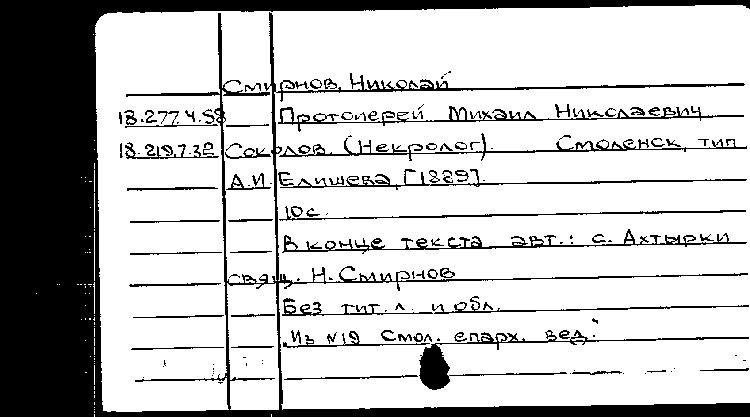 Смирнов, Николай
18.277.4.58 Протоиерей Михаил Николаевич
18.219.7.32 Соколов. (Некролог). Смоленск, тип
А.И. Елишева, [1889].
10с.
В конце текста авт.: с. Ахтырки
свящ. Н. Смирнов
Без тит. л. и обл.
"Из №19 Смол. епарх. вед."